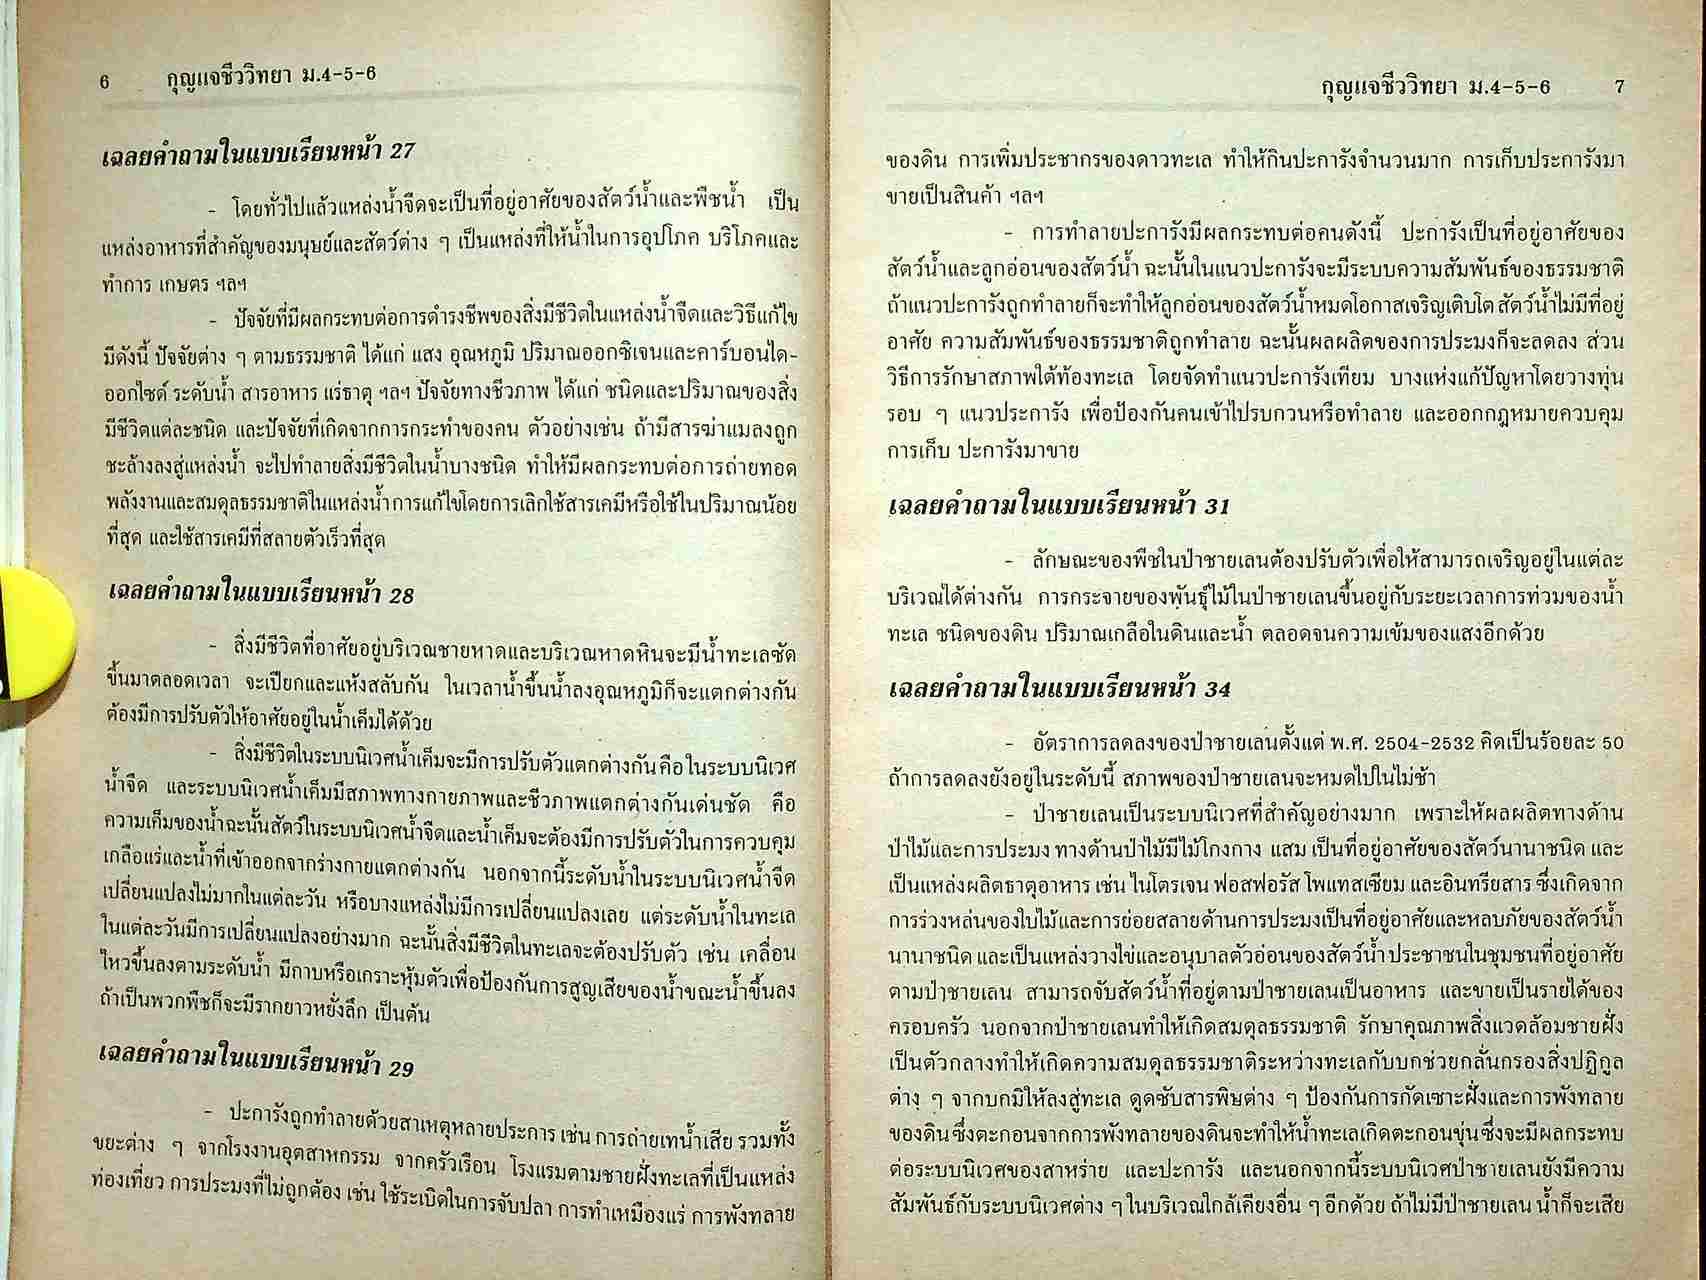 6 กุญแจชีววิทยา ม.4-5-6
เฉลยคำถามในแบบเรียนหน้า 27
- โดยทั่วไปแล้วแหล่งน้ำจืดจะเป็นที่อยู่อาศัยของสัตว์น้ำและพืชน้ำ เป็น
แหล่งอาหารที่สำคัญของมนุษย์และสัตว์ต่าง ๆ เป็นแหล่งที่ให้น้ำในการอุปโภค บริโภคและ
ทำการ เกษตร ฯลฯ
- ปัจจัยที่มีผลกระทบต่อการดำรงชีพของสิ่งมีชีวิตในแหล่งน้ำจืดและวิธีแก้ไข
มีดังนี้ ปัจจัยต่าง ๆ ตามธรรมชาติ ได้แก่ แสง อุณหภูมิ ปริมาณออกซิเจนและคาร์บอนได-
ออกไซด์ ระดับน้ำ สารอาหาร แร่ธาตุ ฯลฯ ปัจจัยทางชีวภาพ ได้แก่ ชนิดและปริมาณของสิ่ง
มีชีวิตแต่ละชนิด และปัจจัยที่เกิดจากการกระทำของคน ตัวอย่างเช่น ถ้ามีสารฆ่าแมลงถูก
ชะล้างลงสู่แหล่งน้ำ จะไปทำลายสิ่งมีชีวิตในน้ำบางชนิด ทำให้มีผลกระทบต่อการถ่ายทอด
พลังงานและสมดุลธรรมชาติในแหล่งน้ำการแก้ไขโดยการเลิกใช้สารเคมีหรือใช้ในปริมาณน้อย
ที่สุด และใช้สารเคมีที่สลายตัวเร็วที่สุด
เฉลยคำถามในแบบเรียนหน้า 28
- สิ่งมีชีวิตที่อาศัยอยู่บริเวณชายหาดและบริเวณหาดหินจะมีน้ำทะเลซัด
ขึ้นมาตลอดเวลา จะเปียกและแห้งสลับกัน ในเวลาน้ำขึ้นน้ำลงอุณหภูมิก็จะแตกต่างกัน
ต้องมีการปรับตัวให้อาศัยอยู่ในน้ำเค็มได้ด้วย
- สิ่งมีชีวิตในระบบนิเวศน้ำเค็มจะมีการปรับตัวแตกต่างกัน คือในระบบนิเวศ
น้ำจืด และระบบนิเวศน้ำเค็มมีสภาพทางกายภาพและชีวภาพแตกต่างกันเด่นชัด คือ
ความเค็มของน้ำฉะนั้นสัตว์ในระบบนิเวศน้ำจืดและน้ำเค็มจะต้องมีการปรับตัวในการควบคุม
เกลือแร่และน้ำที่เข้าออกจากร่างกายแตกต่างกัน นอกจากนี้ระดับน้ำในระบบนิเวศน้ำจืด
เปลี่ยนแปลงไม่มากในแต่ละวัน หรือบางแหล่งไม่มีการเปลี่ยนแปลงเลย แต่ระดับน้ำในทะเล
ในแต่ละวันมีการเปลี่ยนแปลงอย่างมาก ฉะนั้นสิ่งมีชีวิตในทะเลจะต้องปรับตัว เช่น เคลื่อน
ไหวขึ้นลงตามระดับน้ำ มีกาบหรือเกราะหุ้มตัวเพื่อป้องกันการสูญเสียของน้ำขณะน้ำขึ้นลง
ถ้าเป็นพวกพืชก็จะมีรากยาวหยั่งลึก เป็นต้น
เฉลยคำถามในแบบเรียนหน้า 29
- ปะการังถูกทำลายด้วยสาเหตุหลายประการ เช่น การถ่ายเทน้ำเสีย รวมทั้ง
ขยะต่าง ๆ จากโรงงานอุตสาหกรรม จากครัวเรือน โรงแรมตามชายฝั่งทะเลที่เป็นแหล่ง
ท่องเที่ยว การประมงที่ไม่ถูกต้อง เช่น ใช้ระเบิดในการจับปลา การทำเหมืองแร่ การพังทลาย
กุญแจชีววิทยา ม.4-5-6 7
ของดิน การเพิ่มประชากรของดาวทะเล ทำให้กินปะการังจำนวนมาก การเก็บประการังมา
ขายเป็นสินค้า ฯลฯ
- การทำลายปะการังมีผลกระทบต่อคนดังนี้ ปะการังเป็นที่อยู่อาศัยของ
สัตว์น้ำและลูกอ่อนของสัตว์น้ำ ฉะนั้นในแนวปะการังจะมีระบบความสัมพันธ์ของธรรมชาติ
ถ้าแนวปะการังถูกทำลายก็จะทำให้ลูกอ่อนของสัตว์น้ำหมดโอกาสเจริญเติบโต สัตว์น้ำไม่มีที่อยู่
อาศัย ความสัมพันธ์ของธรรมชาติถูกทำลาย ฉะนั้นผลผลิตของการประมงก็จะลดลง ส่วน
วิธีการรักษาสภาพใต้ท้องทะเล โดยจัดทำแนวปะการังเทียม บางแห่งแก้ปัญหาโดยวางทุ่น
รอบ ๆ แนวประการัง เพื่อป้องกันคนเข้าไปรบกวนหรือทำลาย และออกกฎหมายควบคุม
การเก็บ ปะการังมาขาย
เฉลยคำถามในแบบเรียนหน้า 31
- ลักษณะของพืชในป่าชายเลนต้องปรับตัวเพื่อให้สามารถเจริญอยู่ในแต่ละ
บริเวณได้ต่างกัน การกระจายของพันธุ์ไม้ในป่าชายเลนขึ้นอยู่กับระยะเวลาการท่วมของน้ำ
ทะเล ชนิดของดิน ปริมาณเกลือในดินและน้ำ ตลอดจนความเข้มของแสงอีกด้วย
เฉลยคำถามในแบบเรียนหน้า 34
- อัตราการลดลงของป่าชายเลนตั้งแต่ พ.ศ. 2504-2532 คิดเป็นร้อยละ 50
ถ้าการลดลงยังอยู่ในระดับนี้ สภาพของป่าชายเลนจะหมดไปในไม่ช้า
- ป่าชายเลนเป็นระบบนิเวศที่สำคัญอย่างมาก เพราะให้ผลผลิตทางด้าน
ป่าไม้และการประมง ทางด้านป่าไม้มีไม้โกงกาง แสม เป็นที่อยู่อาศัยของสัตว์นานาชนิด และ
เป็นแหล่งผลิตธาตุอาหาร เช่น ไนโตรเจน ฟอสฟอรัส โพแทสเซียม และอินทรียสาร ซึ่งเกิดจาก
การร่วงหล่นของใบไม้และการย่อยสลายด้านการประมงเป็นที่อยู่อาศัยและหลบภัยของสัตว์น้ำ
นานาชนิด และเป็นแหล่งวางไข่และอนุบาลตัวอ่อนของสัตว์น้ำ ประชาชนในชุมชนที่อยู่อาศัย
ตามป่าชายเลน สามารถจับสัตว์น้ำที่อยู่ตามป่าชายเลนเป็นอาหาร และขายเป็นรายได้ของ
ครอบครัว นอกจากป่าชายเลนทำให้เกิดสมดุลธรรมชาติ รักษาคุณภาพสิ่งแวดล้อมชายฝั่ง
เป็นตัวกลางทำให้เกิดความสมดุลธรรมชาติระหว่างทะเลกับบกช่วยกลั่นกรองสิ่งปฏิกูล
ต่าง ๆ จากบกมิให้ลงสู่ทะเล ดูดซับสารพิษต่าง ๆ ป้องกันการกัดเซาะฝั่งและการพังทลาย
ของดิน ซึ่งตะกอนจากการพังทลายของดินจะทำให้น้ำทะเลเกิดตะกอนขุ่น ซึ่งจะมีผลกระทบ
ต่อระบบนิเวศของสาหร่าย และปะการัง และนอกจากนี้ระบบนิเวศป่าชายเลนยังมีความ
สัมพันธ์กับระบบนิเวศต่าง ๆ ในบริเวณใกล้เคียงอื่น ๆ อีกด้วย ถ้าไม่มีป่าชายเลน น้ำก็จะเสีย